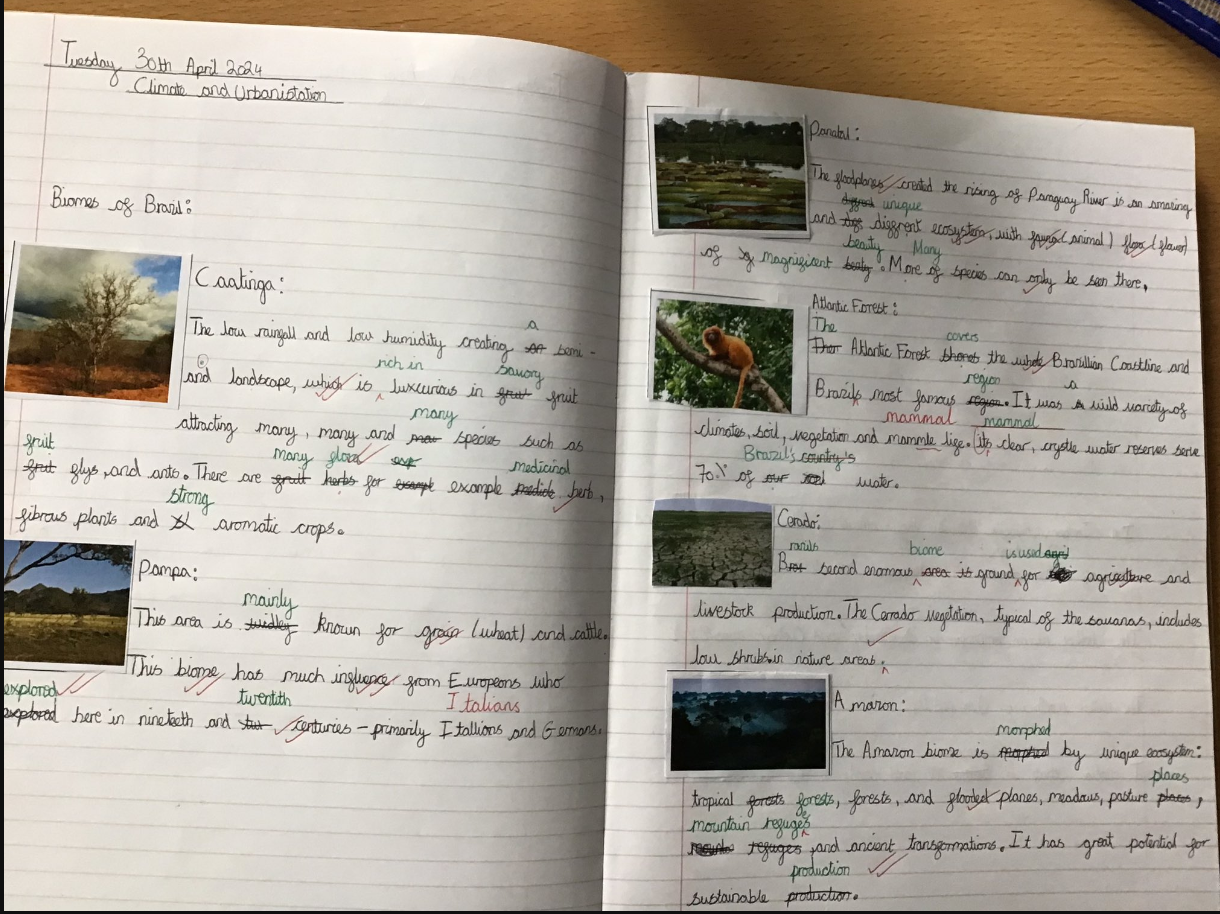 Tuesday 30th April 2024
Climate and Urbanistation
Biomes of Brazil:
Caatinga:
a
The low rainfall and low humidity creating an semi-
rich in savory
and landscape, which is luxcurious in fruit fruit
many
attracting many, many and man species such as
fruit many flora exp medicinal
frut flys, and ants. There are fruit herbs for example example medicle herb,
strong
fibrous plants and aromatic crops.
Pampa:
mainly
This area is widley known for grain (wheat) and cattle.
This biome has much influence from Europeons who
explored twentith Italians
explored here in nineteeth and centuries - primarily Itallions and Germans.
Panatal:
The floodplanes created the rising of Paraguay River is an amazing
unique
and diffrent ecosystem, with fauna (animal) flora (flower)
beauty Many
of magnificent beaty. More of species can only be seen there.
Atlantic Forest:
The covers
Ther Atlantic Forest shores the whole Brazillian Coastline and
region a
Brazils most famous region. It was a wild variety of
mammal mammal
climates, soil, vegetation and mammle life. its clear, crystle water reserve serve
Brazil's country's
70% of our water.
Cerado:
razils biome is used agri
Brat second enomous area is ground for agriculture and
livestock production. The Cerrado vegetation, typical of the savanas, includes
low shrubs in nature areas.
Amazon:
morphed
The Amazon biome is morphed by unique ecosystem:
places
tropical forests forests, forests, and flooded planes, meadows, pasture places,
mountain refuges
refuges and ancient transformations. It has great potential for
production
sustainable production.